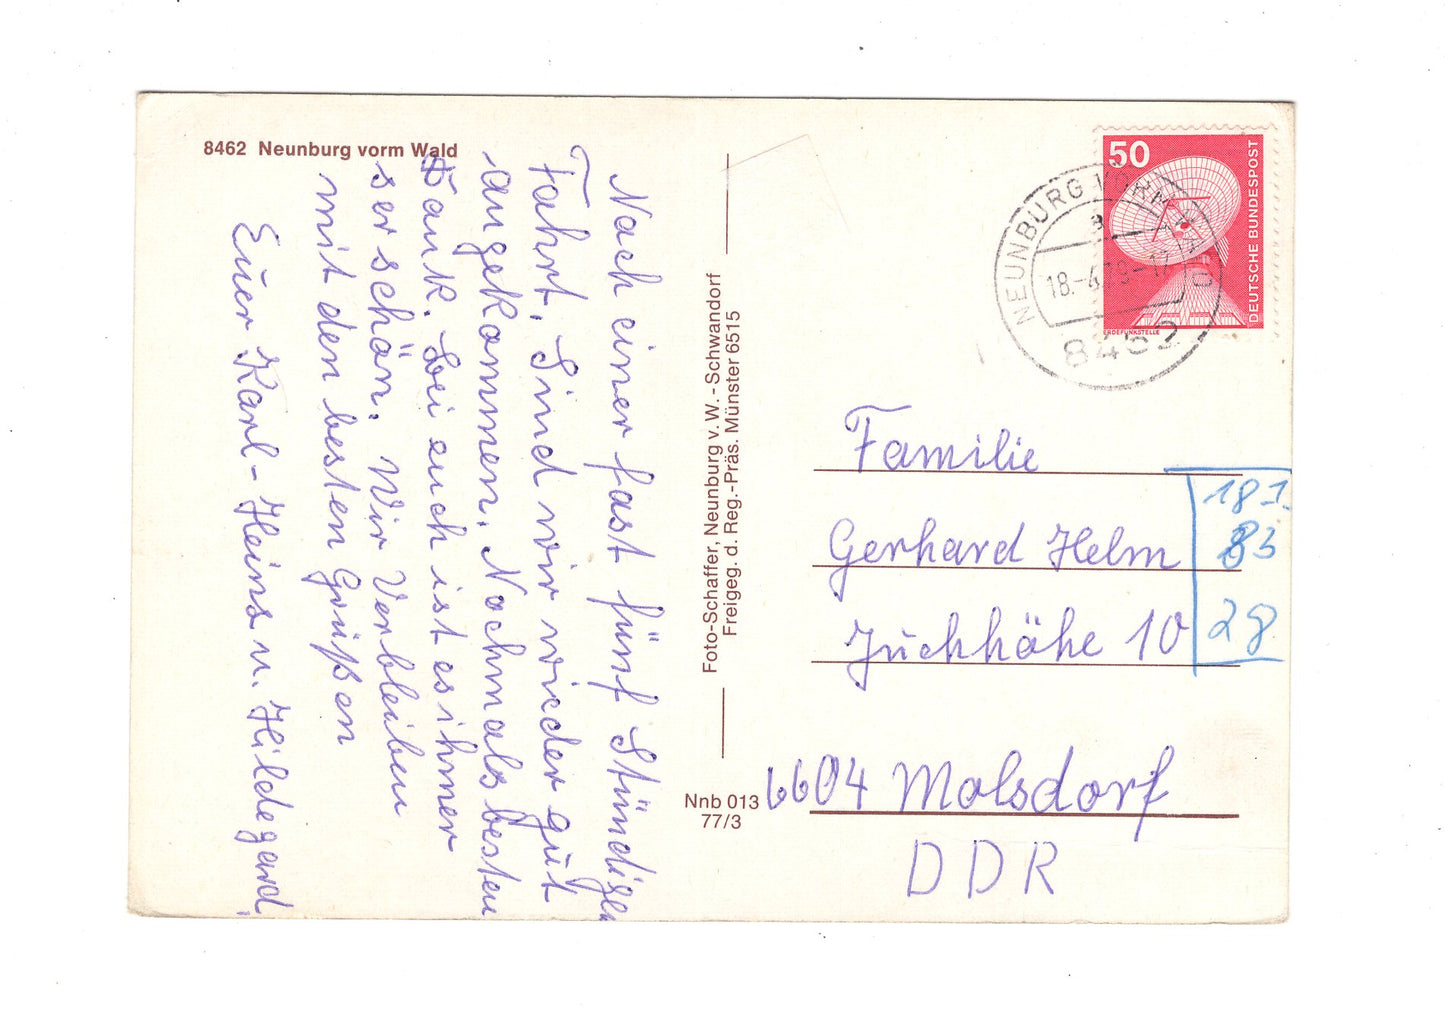 8462 Neunburg vorm Wald
Nach einer fast fünf Stündigen
Fahrt. Sind wir wieder gut
angekommen. Nochmals besten
Dank. Bei euch ist es ihmer
ser schön. Wir Verbleiben
mit den besten Grüßen
Euer Karl-Heins u. Hildegard.
Foto-Schaffer, Neunburg v. W. - Schwandorf
Freigeg. d. Reg.-Präs. Münster 6515
Nnb 013
77/3
50
DEUTSCHE BUNDESPOST
ERDEFUNKSTELLE
NEUNBURG VORM WALD
a
18.-4.79-17
8462
Familie
Gerhard Helm
Juchhöhe 10
6604 Molsdorf
DDR
181
83
28